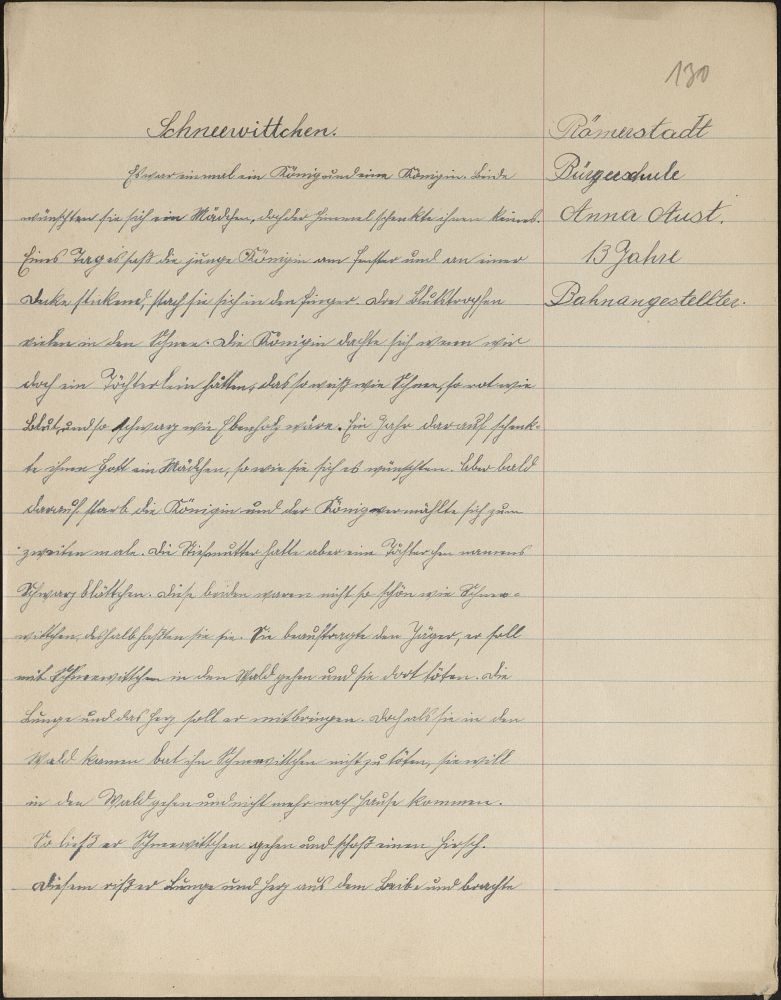 130
Schneewittchen.
Römerstadt
Bürgerschule
Anna Aust.
13 Jahre
Bahnangestellter.
Es war einmal ein König und eine Königin. Beide
wünschten sie sich ein Mädchen, doch der Himmel schenkte ihnen keines.
Eines Tages saß die junge Königin am Fenster und an einer
Decke stickend, stach sie sich in den Finger. Drei Blutstropfen
vielen in den Schnee. Die Königin dachte sich wenn wir
doch ein Töchterlein hätten, das so weiß wie Schnee, so rot wie
Blut, und so schwarz wie Ebenholz wäre. Ein Jahr darauf schenk-
te ihnen Gott ein Mädchen, so wie sie sich es wünschten. Aber bald
darauf starb die Königin und der König vermählte sich zum
zweiten male. Die Stiefmutter hatte aber eine Töchterchen namens
Schwarzblättchen. Diese beiden waren nicht so schön wie Schnee-
wittchen, deshalb haßten sie sie. Sie beauftragte den Jäger, er soll
mit Schneewittchen in den Wald gehen und sie dort töten. Die
Lunge und das Herz soll er mitbringen. Doch als sie in den
Wald kamen bat ihn Schneewittchen nicht zu töten, sie will
in den Wald gehen und nicht mehr nach Hause kommen.
So ließ er Schneewittchen gehen und schoß einen Hirsch.
Diesem riß er Lunge und Herz aus dem Leibe und brachte